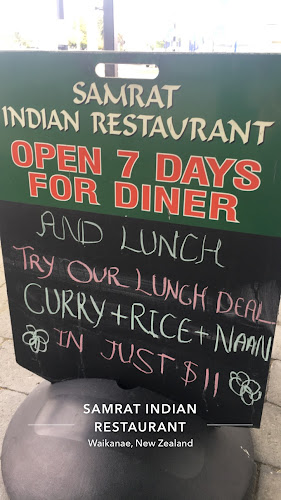 SAMRAT
INDIAN RESTAURANT
OPEN 7 DAYS
FOR DINER
AND LUNCH
TRY OUR LUNCH DEAL
CURRY+RICE+NAAN
IN JUST $11
SAMRAT INDIAN
RESTAURANT
Waikanae, New Zealand